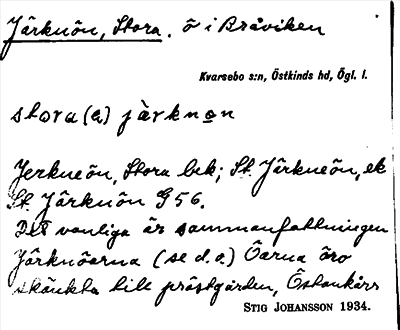 Järknön, Stora. ö i Bråviken
Kvarsebo s:n, Östkinds hd, Ögl. l.
stora(a) jàrknọn
Jerkneön, Stora bek; St. Järkneön, ek
St. Järknön G 56.
Det vanliga är sammanfattningen
Järknöarna (se d. o.) Öarna äro
skänkta till prästgården, Östankärr
STIG JOHANSSON 1934.